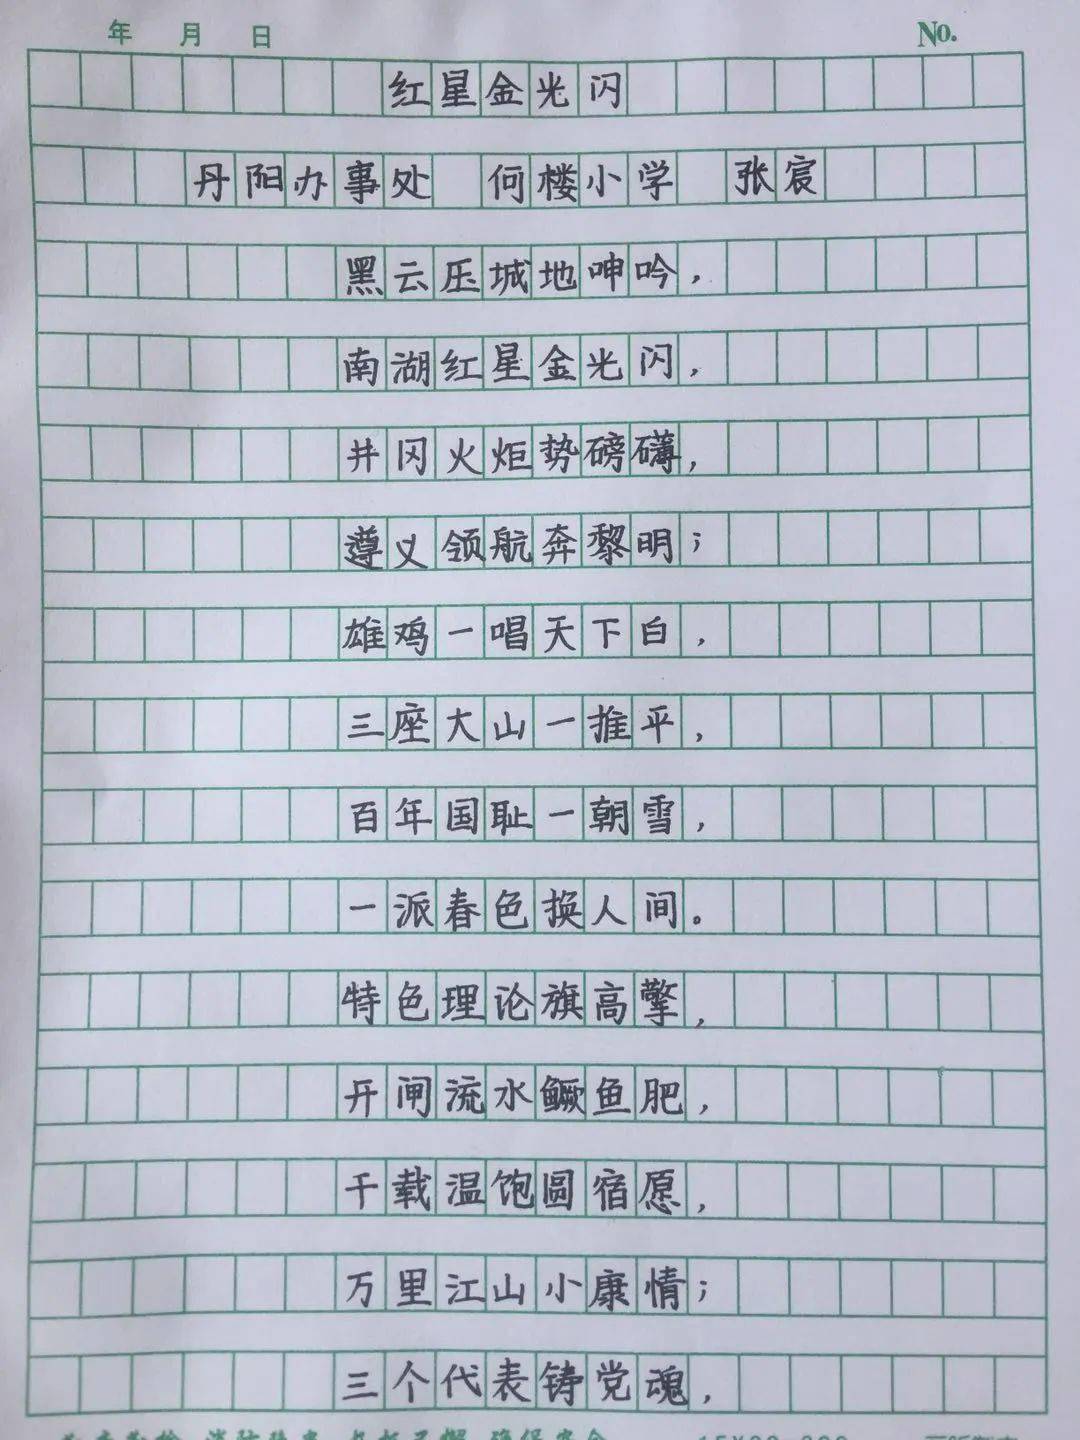 年 月 日 No.
红星金光闪
丹阳办事处 何楼小学 张宸
黑云压城地呻吟，
南湖红星金光闪，
井冈火炬势磅礴，
遵义领航奔黎明；
雄鸡一唱天下白，
三座大山一推平，
百年国耻一朝雪，
一派春色换人间。
特色理论旗高擎，
开闸流水鳜鱼肥，
千载温饱圆宿愿，
万里江山小康情；
三个代表铸党魂，